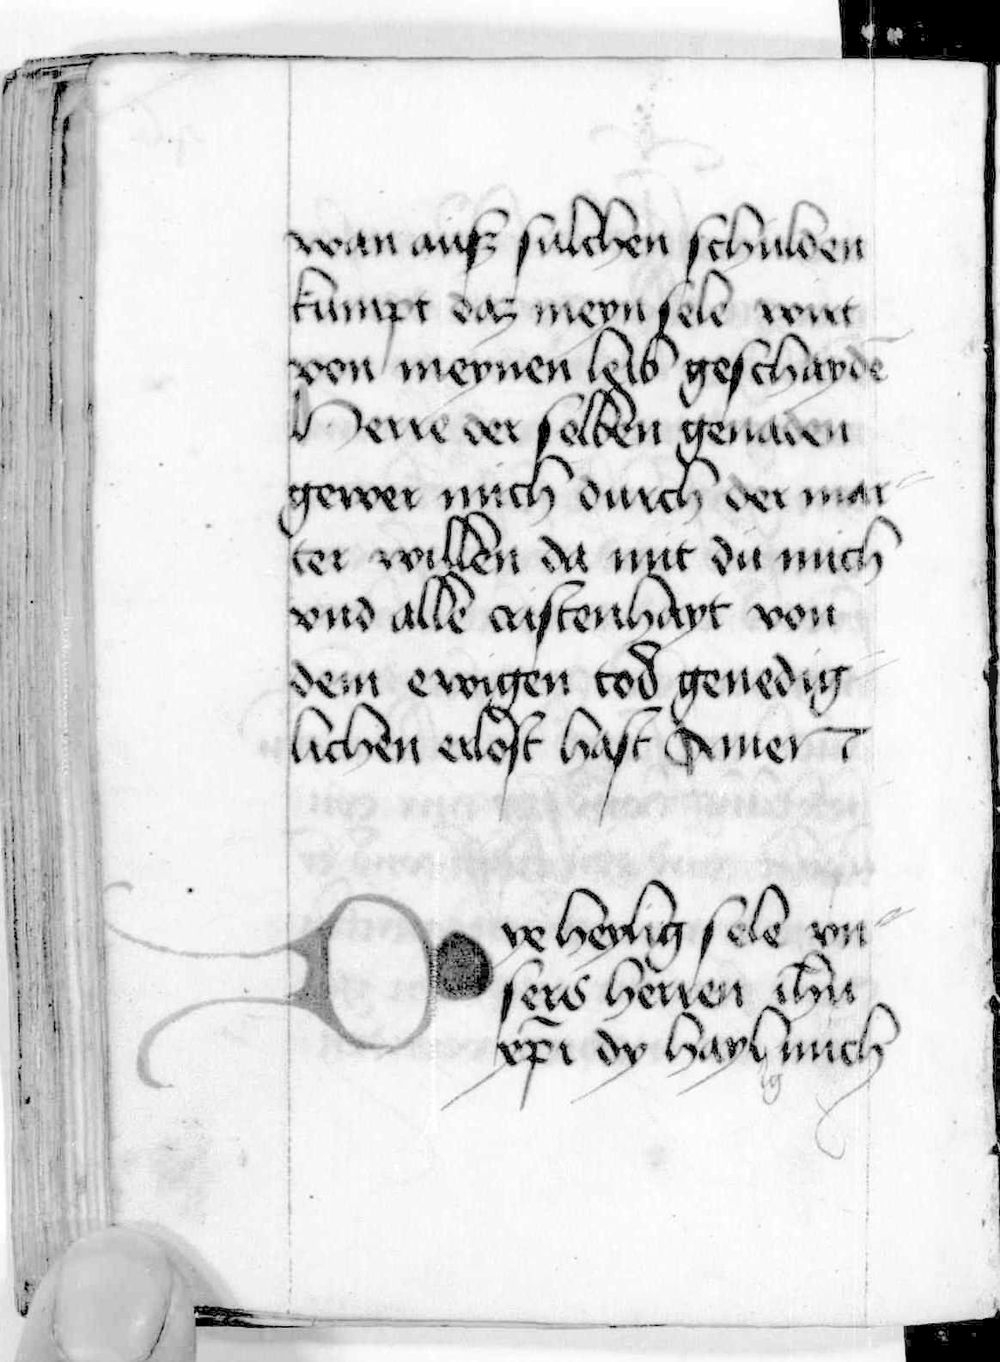 wan auſz sulchen schulden
kumpt daz meyn sele wirt
von meynen leib geschaydē
Herre der selben genaden
gewer mich durch der mar-
ter willen da mit du mich
vnd alle cristenhayt von
dem ewigen tod genedig-
lichen erlost hast Amen
Dye heylig sele vn-
sers herren ihū
xp̄i dy hayl mich
ig